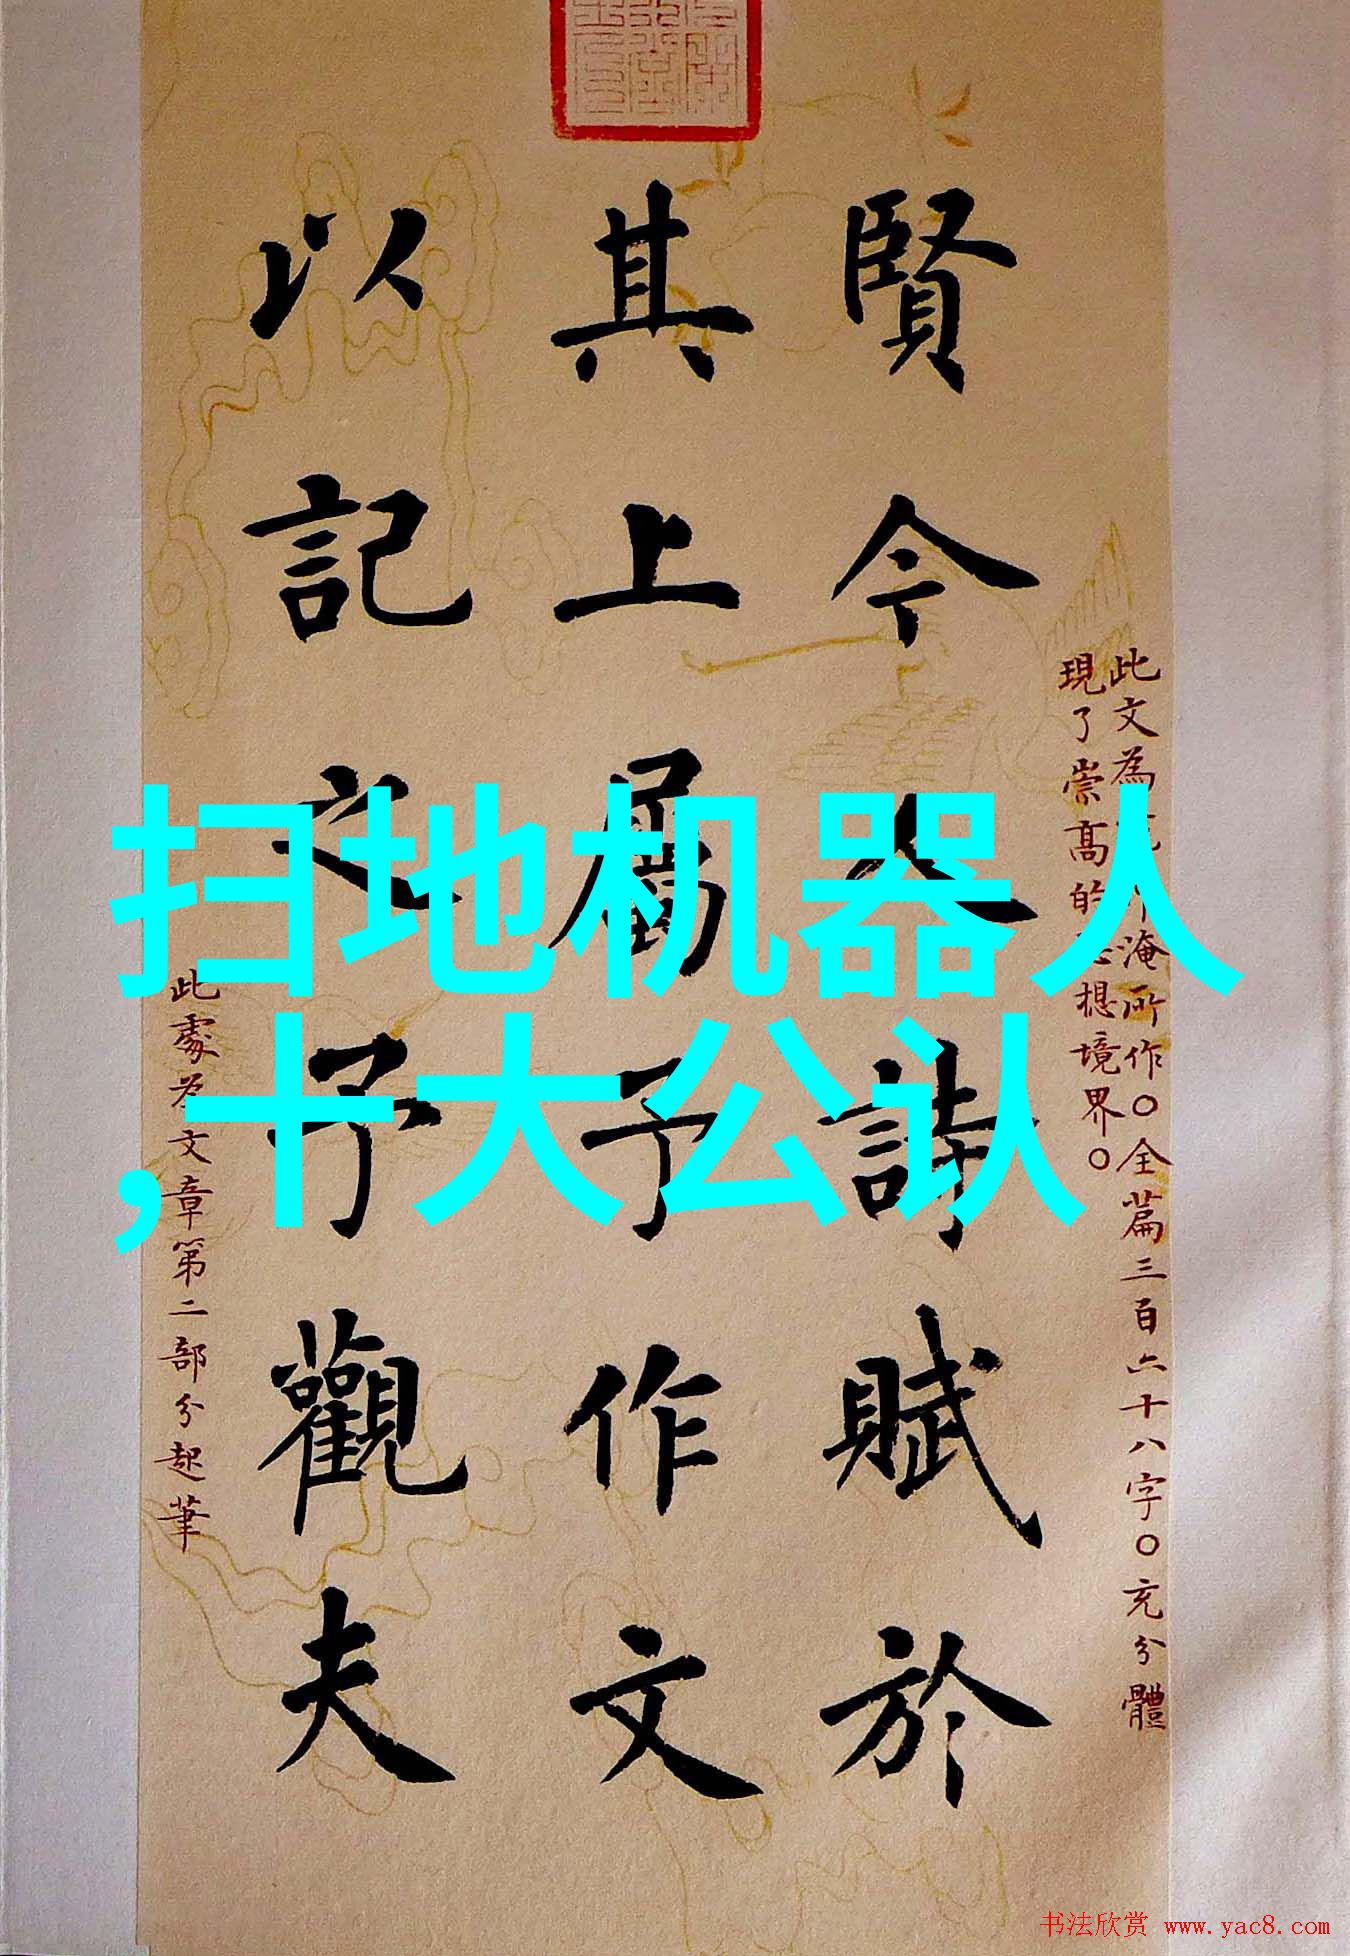 賢今人詩賦於
其上屬予作文
以記之予觀夫
此文為范仲淹所作〇全篇三百六十八字〇充分體
現了崇高的思想境界〇
此處為文章第二部分起筆
扫地机器人
，十大公认
书法欣赏 www.yac8.com